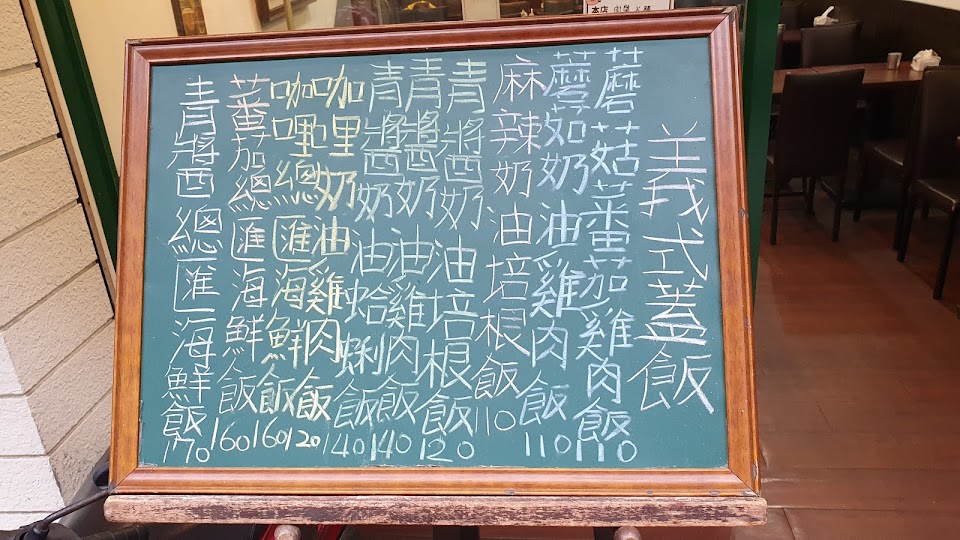 本店
義式蓋飯
蘑菇蕃茄雞肉飯110
蘑菇奶油雞肉飯110
麻辣奶油培根飯110
青醬奶油培根飯120
青醬奶油雞肉飯140
青醬奶油蛤蜊飯140
咖哩奶油雞肉飯120
咖哩總匯海鮮飯160
蕃茄總匯海鮮飯160
青醬總匯海鮮飯170